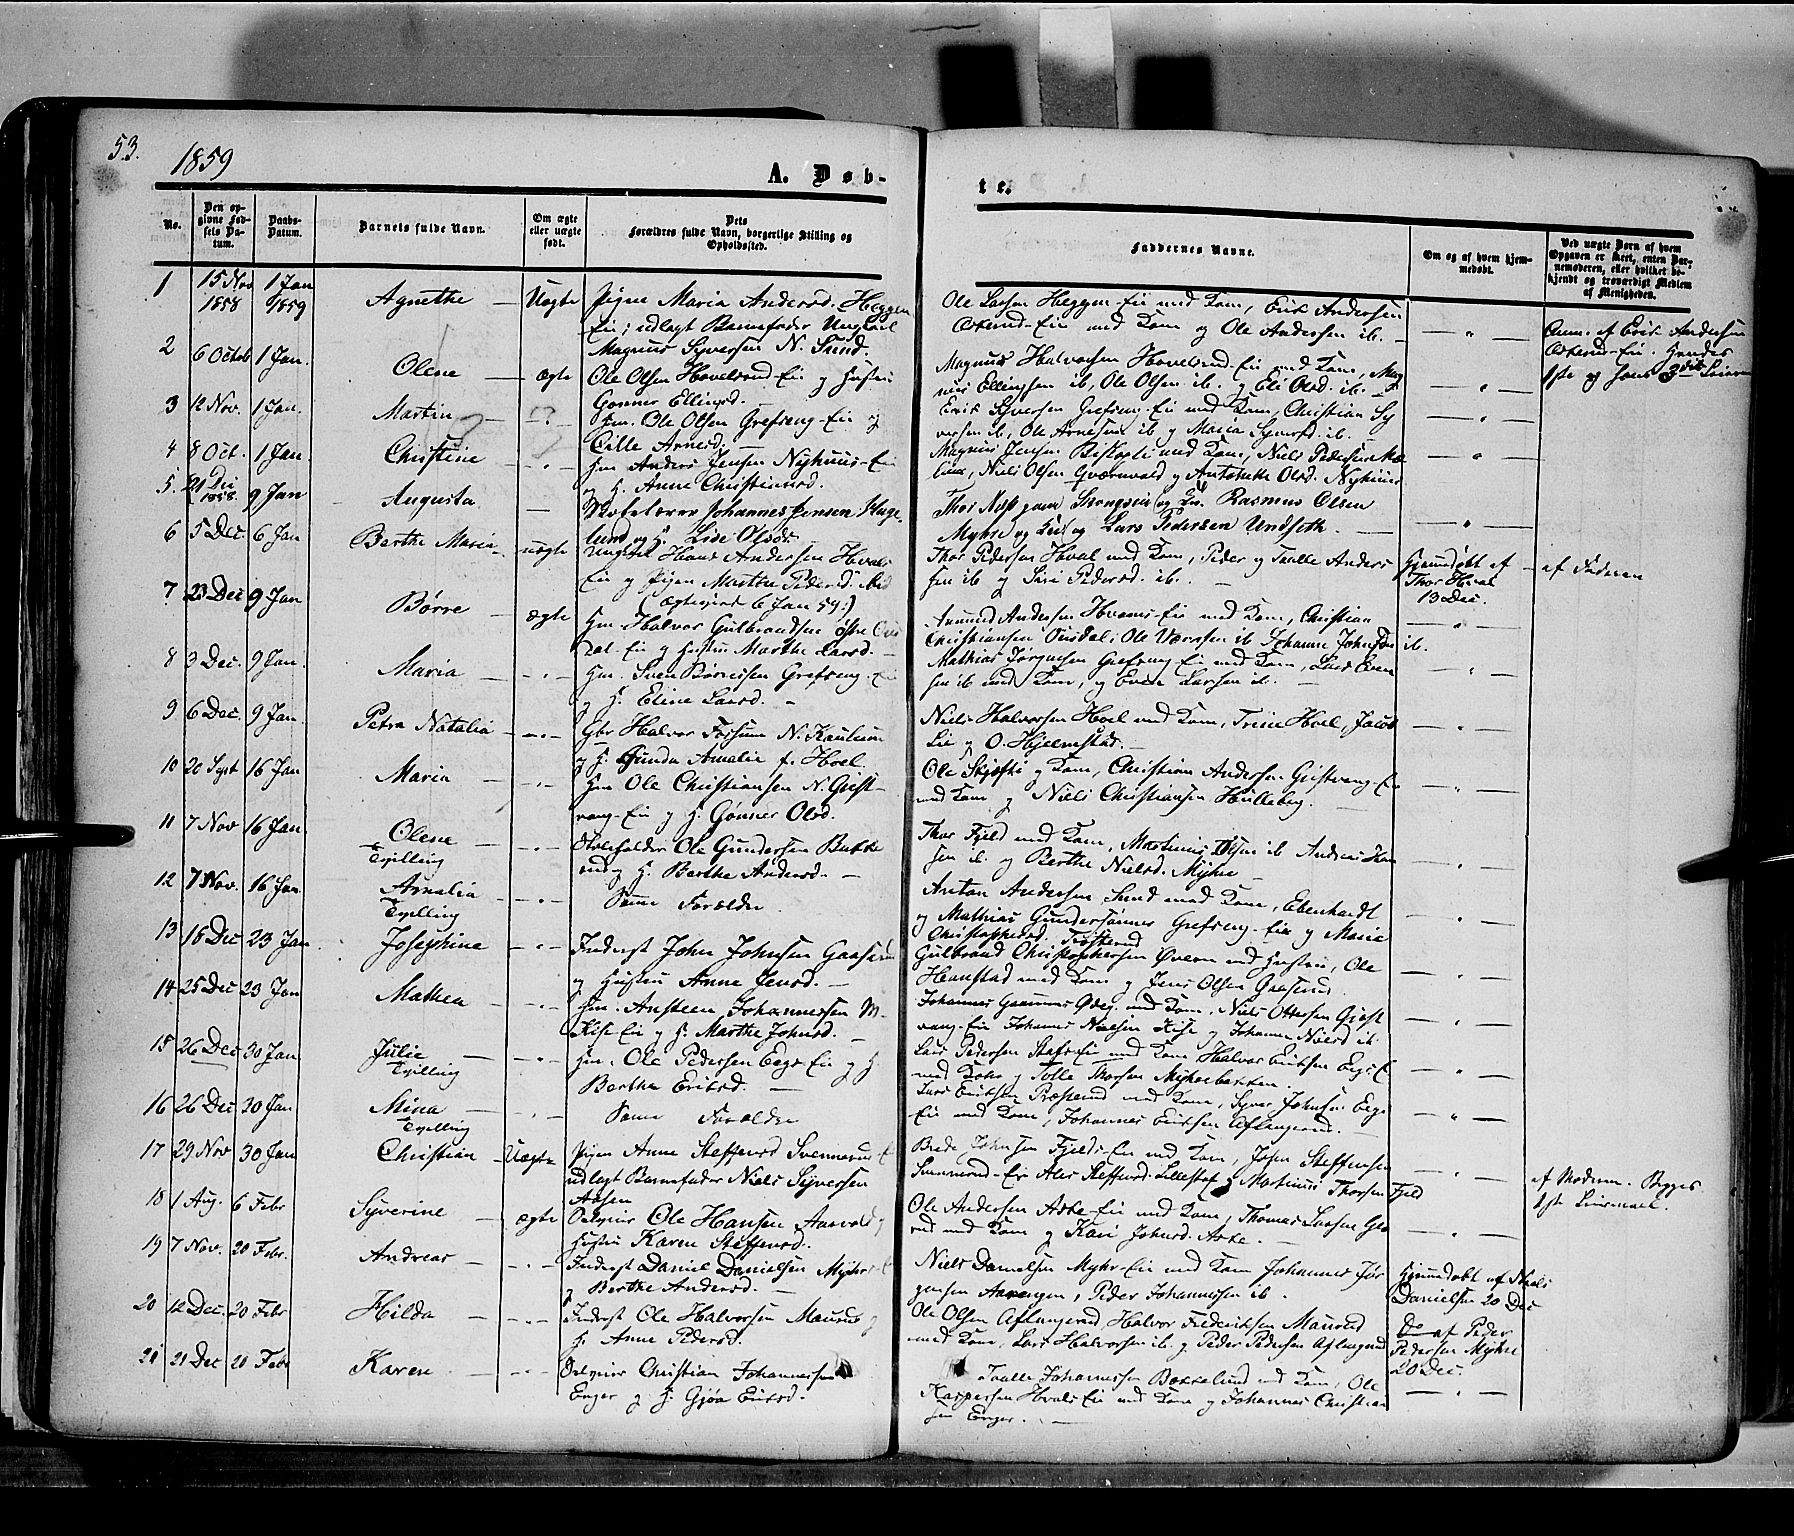 53.
1859
A. Døb-
te.
No.
Den opgivne Fødsels Datum.
Daabs-Datum.
Barnets fulde Navn.
Om ægte eller uægte født.
Dets Forældres fulde Navn, borgerlige Stilling og Opholdssted.
Faddernes Navne.
Om og af hvem hjemmedøbt.
Ved uægte Born af hvem Opgaven er skeet, enten Barnemoderen, eller hvilket bekjendt og troværdigt Medlem af Menigheden.
1 15 Nov 1858 1 Jan 1859 Agnethe — Uægte Pigen Maria Andersd. Heggen
Eie; udlagt Barnefader Ungkarl
Magnus Syversen N. Sund.
Ole Larsen Heggen-Eie med Kone, Erik Andersen
Eie med Kone og Ole Andersen ib. —
Anm. af Erik Andersen
Eie. Hendes
1ste og hans 3die Leierm
2 6 Octob 1 Jan. Olene — ægte Ole Olsen Hovelsrud-Eie og Hustru
Gonner Ellingsd.
Magnus Halvorsen Hovelsrud-Eie med Kone, Mag
nus Ellingsen ib, Ole Olsen ib. og Eli Olsd. ib. —
3 12 Nov. 1 Jan. Martin Hm. Ole Olsen Grefseng-Eie og
Cille Arnesd. —
Erik Syversen Grefseng-Eie med Kone, Christian Sy
versen ib, Ole Arnesen ib og Maria Syversd. ib.
4 8 Oct. 1 Jan. Christine — Hm Anders Jensen Nyhuus-Eie
og H. Anne Christiansd.
Magnus Jensen med Kone, Niels Pedersen
Niels Olsen og Antonette Olsd. Nyhuus
5. 21 Dec 1858. 9 Jan Augusta — Johannes Jensen Hage-
lund og H. Lise Olsdr.
Thor og Fru. Rasmus Olsen
Myhre og Lars Pedersen Undseth
6 5 Dec 6 Jan Berthe Maria — uægte Ungkarl Hans Andersen Hvals
Eie og Pigen Marthe Pedersd. ibid
(Ægteviede 6 Jan 59.)
Thor Pedersen Hval med Kone, Peder og Taalle Anders
sen ib og Siri Pedersd. ib.
Hjemmedøbt af
Thor Hval
13 Dec.
af Faderen
7 23 Dec 9 Jan Børre — ægte Hm Halvor Gulbrandsen østre
dal-Eie og Hustru Marthe Larsd. —
Amund Andersen Hvams-Eie med Kone, Christian
Christiansen Ousdal, Ole ib Johanne Johnsdr ib.
8 3 Dec. 9 Jan. Maria — Hm. Sven Børresen Grefseng-Eie
og H. Eline Larsd. —
Mathias Jørgensen Grefseng-Eie med Kone, Lars Even
sen ib med Kone, og Even Larsen ib. —
9 6 Dec. 9 Jan Petra Natalia — Gbr Halvor N.
og H. Gunda Amalie f. Hoel
Niels Halvorsen Hoel med Kone, Trine Hoel, Jacob
Lie og O. Hjelmstad. —
10 20 Sept 16 Jan Maria — Hm Ole Christiansen N. Gjest-
vang-Eie og H. Gønner Olsd.
Ole Skjefte og Kone, Christian Andersen Gjestvang-Eie
med Kone og Niels Christiansen Hilleberg.
11 7 Nov 16 Jan. Olene
Tvilling — Ole Gundersen
rud og H. Berthe Andersd. —
Thor Fjeld med Kone, Martinius Olsen ib Andreas Han
sen ib. og Berthe Nielsd. Myhre —
12 7 Nov. 16 Jan. Amalia
Tvilling — Samme Forældre
Anton Andersen Sund med Kone, Ebenhardt
og Mathias Gundersønner Grefseng-Eie og Maria
Christophersd.
13 18 Dec 23 Jan. Josephine — Inderst John Johnsen Gaaserud
og Hustru Anne Jensd. —
Gulbrand Christophersen Øvern med Hustru, Ole
Hemstad med Kone og Jens Olsen Gaaserud.
14 25 Dec 23 Jan Mathea Hm. Ansteen Johannessen M.
Kise Eie og H. Marthe Johnsd. —
Johannes med Kone, Niels Ottersen Gjest
vang-Eie Johannes Nielsen Kise og Johanne Nielsd ib.
15 26 Dec 30 Jan Julie —
Tvilling Hm. Ole Pedersen Eegs-Eie og H.
Berthe Eriksd. —
Lars Pedersen med Kone Halvor Eriksen Eegs-E
med Kone og Tolle Thorsen Myhrebakken.
16 26 Dec 30 Jan Mina —
Tvilling Samme Forældre
Lars Eriksen Præsterud med Kone, Syver Johnsen Eegs
Eie med Kone, Johannes Eriksen Aflangerud. —
17 29 Nov 30 Jan Christian — Uægte Pigen Anne Steffensd Svennerud-E
udlagt Barnefader Niels Syversen
Aasen
Brede Johnsen Fjelds-Eie med Kone, John Steffensen
Svennerud-Eie Steffensd. og Martinius Thorsen Fjeld
af Moderen. Begges
1ste Leiermaal.
18 1 Aug. 6 Febr Syverine — ægte Ole Hansen Aasvold og
Hustru Karen Steffensd.
Ole Andersen Aske-Eie med Kone, Thomas Larsen
med Kone og Kari Johnsd. Aske. —
19 7 Nov. 20 Febr. Andreas — Inderst Daniel Danielsen Myhre-E
og Berthe Andersd. —
Niels Danielsen Myhr-Eie med Kone Johannes Jør
gensen Aarengen, Peder Johannessen ib.
Hjemmedøbt af Niels
Danielsen 20 Dec
20 12 Dec. 20 Febr Hilda — Inderst Ole Halvorsen Maurud og
H. Anne Pedersd.
Ole Olsen Aflangerud, Halvor Frederiksen Maurud
med Kone, Lars Halvorsen ib. og Peder Pedersen Aflangrud
Do af Peder
Pedersen Myhre
20 Dec.
21 21 Dec 20 Febr Karen — Christian Johannessen
Enger og H. Gjøa Eriksd.
Taalle Johannessen Bækkelund med Kone, Ole
Kaspersen Hvals Eie med Kone og Johannes Christian
sen Enger. —